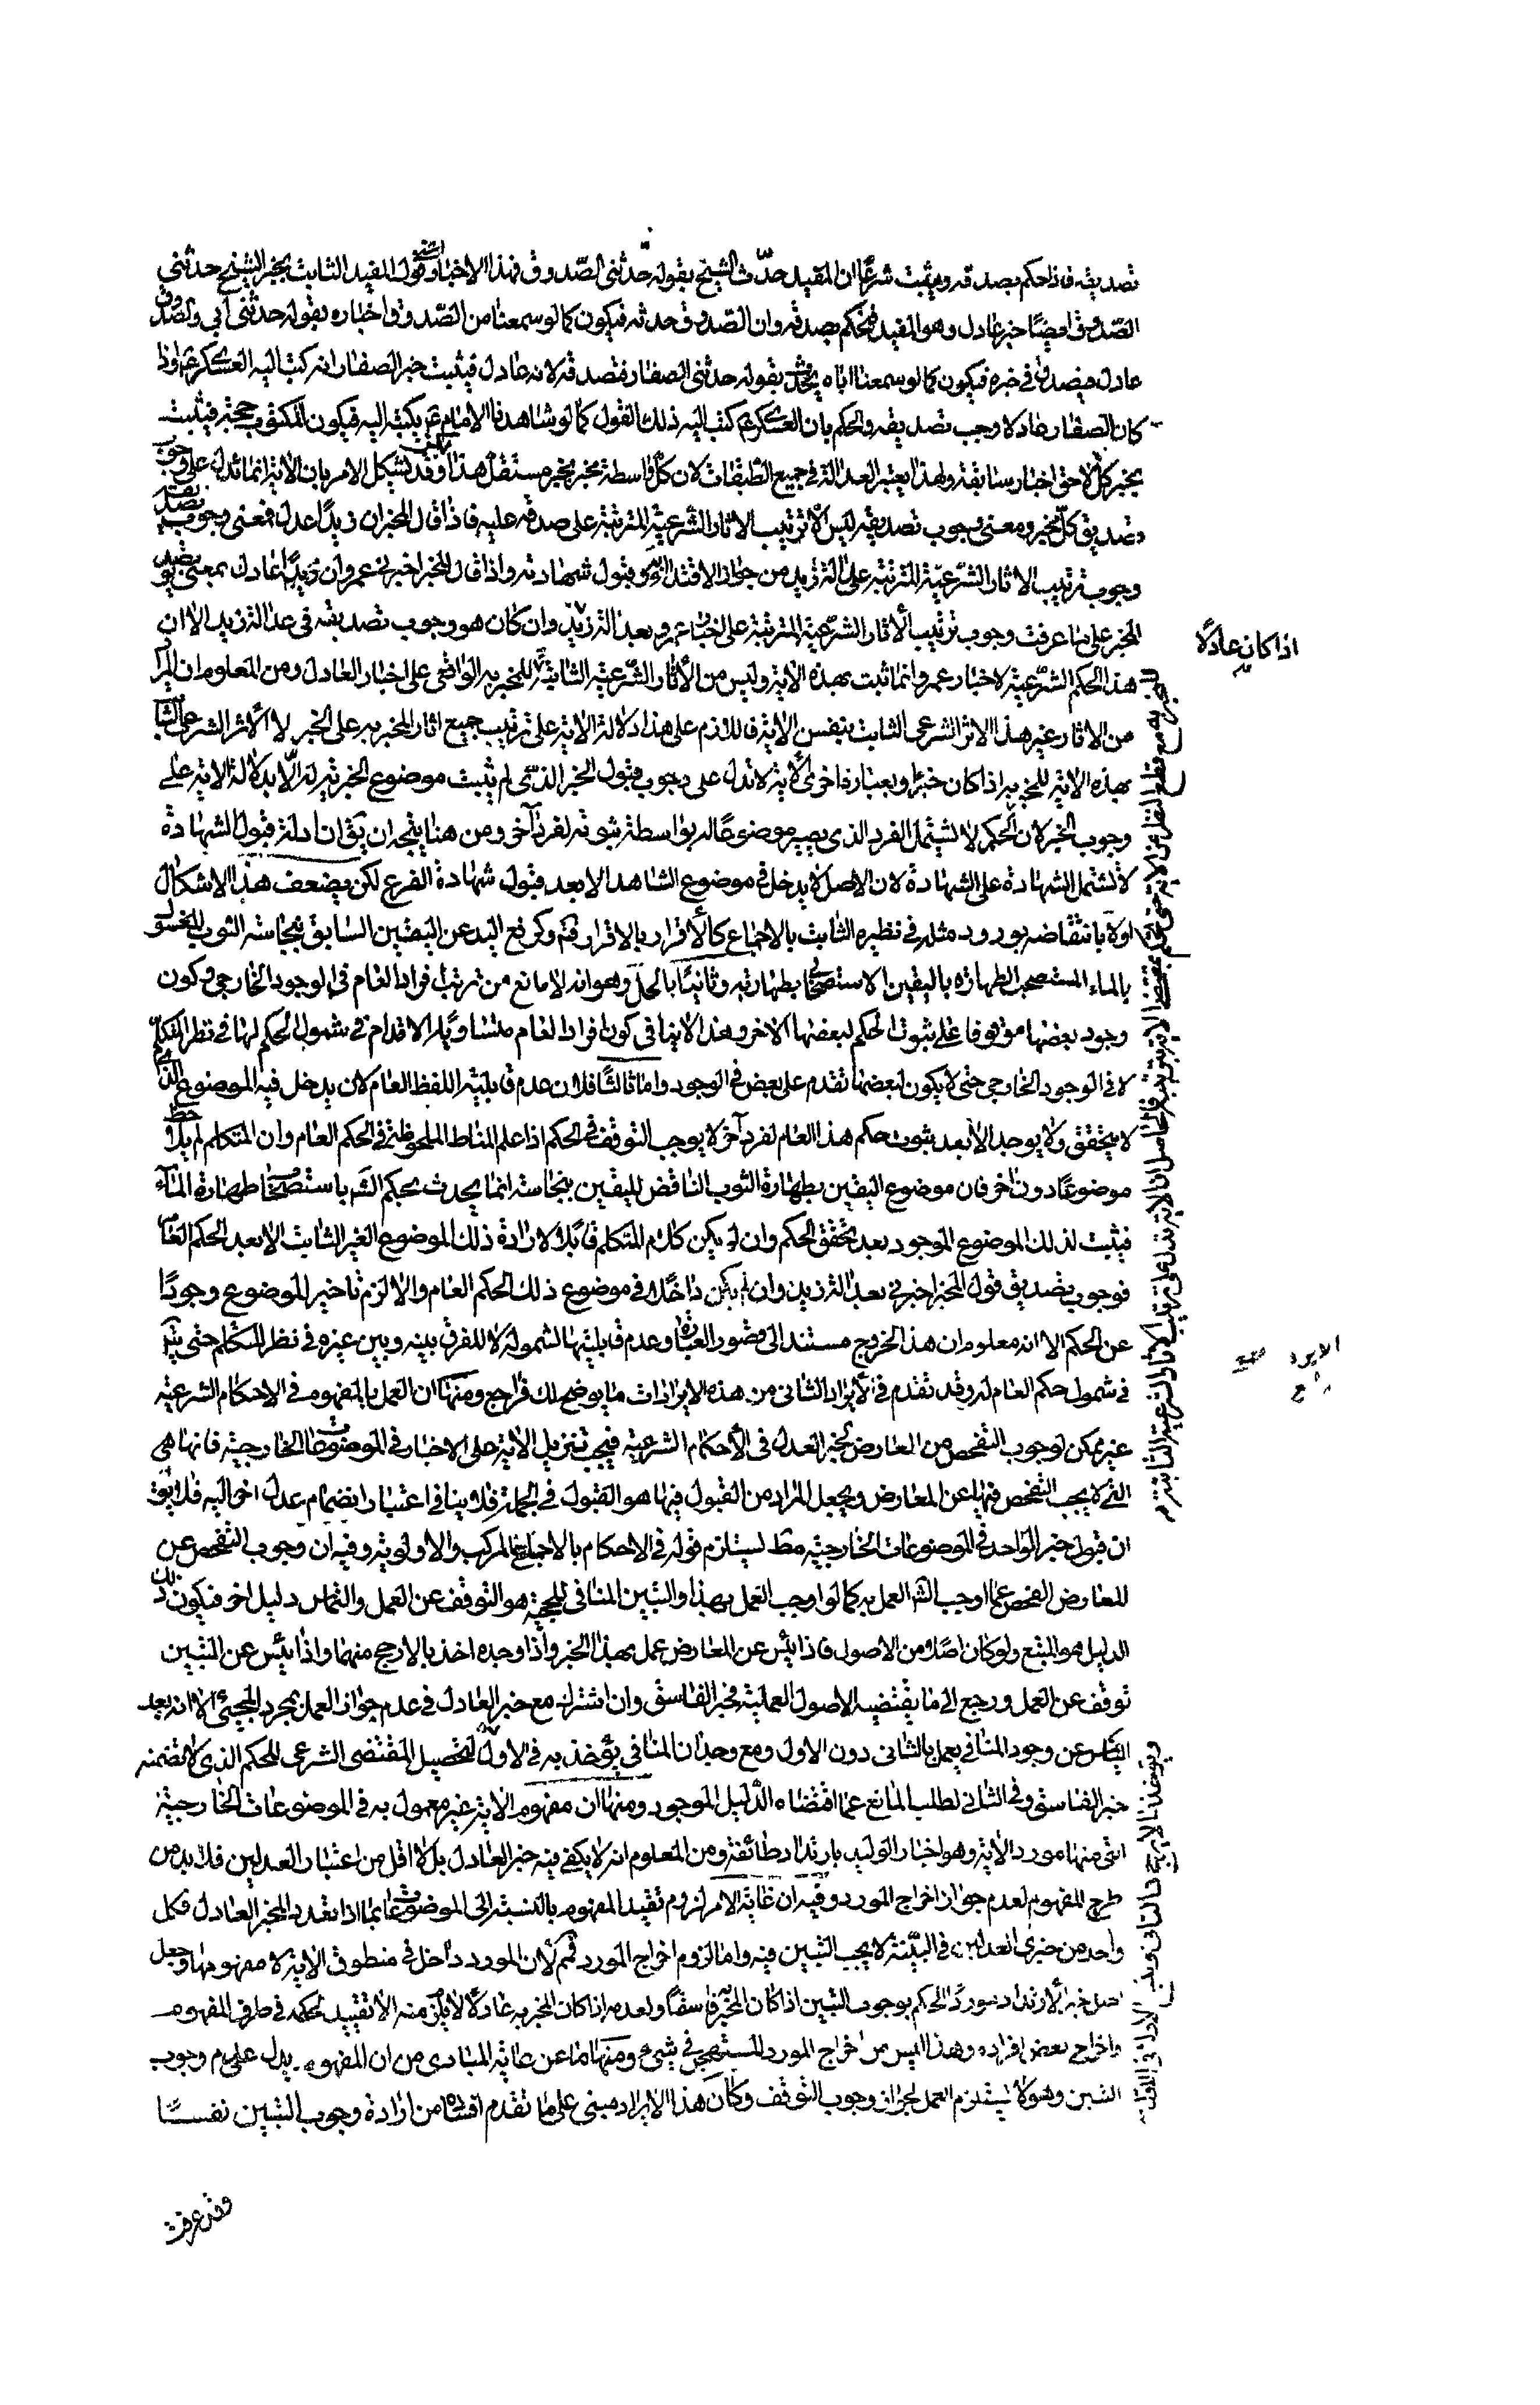 تصديقه فاذا حكم بصدقه وثبت شرعًا ان المفيد حدّث الشيخ بقوله حدثنى الصّدوق فهذا الاخبار اعنى قول المفيد الثابت بخبر الشيخ حدثنى
الصّدوق ايضًا خبر عادل وهو المفيد فنحكم بصدقه وان الصّدوق حدثه فيكون كما لو سمعنا من الصّدوق اخباره بقوله حدثنى ابى والصّدوق
عادل فيصدق فى خبره فيكون كما لو سمعنا اباه يحدث بقوله حدثنى الصفار فنصدقه لانه عادل فيثبت خبر الصفار انه كتب اليه العسكرى ع واذا
كان الصفار عادلا وجب تصديقه والحكم بان العسكرى ع كتب اليه ذلك القول كما لو شاهدنا الامام ع يكتبه اليه فيكون المكتوب حجة فيثبت
بخبر كلّ لاحق اخبار سابقه ولهذا يعتبر العدالة فى جميع الطبقات لان كلّ واسطة مخبر بخبر مستقل هذا وقد يشكل الامر بان الاية انما تدل على وجوب
تصديق كلّ مخبر ومعنى وجوب تصديقه ليس الا ترتيب الاثار الشّرعية المترتبة على صدقه عليه فاذا قال المخبر ان زيدًا عدل فمعنى وجوب تصديقه
وجوب ترتيب الاثار الشّرعيّة المترتبة على عدالة زيد من جواز الاقتداء به وقبول شهادته واذا قال المخبر اخبرنى عمرو ان زيدًا عادل فمعنى تصديق
المخبر على ما عرفت وجوب ترتيب الأثار الشرّعية المترتبة على اخبار عمرو بعدالة زيد وان كان هو وجوب تصديقه فى عدالة زيد الا ان
اذا كان عادلًا
هذا الحكم الشّرعى لاخبار عمرو انما ثبت بهذه الاية وليس من الأثار الشّرعية الثابتة للمخبر به الواقعى على اخبار العادل ومن المعلوم ان المراد
من الاثار غير هذا الاثر الشرعى الثابت بنفس الاية فاللازم على هذا دلالة الاية على ترتيب جميع اثار المخبر به على الخبر الا الأثر الشرعى الثابت
بهذه الاية للمخبر به اذا كان خبرًا وبعبارة اخرى الأية لا تدل على وجوب قبول الخبر الذى لم يثبت موضوع الخبرية له الّا بدلالة الاية على
وجوب الخبر لان الحكم لا يشتمل الفرد الذى يصير موضوعًا له بواسطة ثبوته لفرد آخر ومن هنا يتجه ان يق ان ادلة قبول الشهادة
لا تشتمل الشهادة على الشهادة لان الاصل لا يدخل فى موضوع الشاهد الا بعد قبول شهادة الفرع لكن يضعف هذا الاشكال
اولا بانتقاضه بورود مثله فى نظيره الثابت بالاجماع كالأقرار بالاقرار فتم وكرفع اليد عن اليقين السابق بنجاسة الثوب المغسول
بالماء المستصحب الطهارة باليقين الاستصحابى بطهارته وثانيًا بالحلّ وهو انه لا مانع من ترتب افراد العام فى الوجود الخارجى وكون
وجود بعضها موقوفا على ثبوت الحكم لبعضها الاخر وهذا لا ينافى كون افراد العام متساوية الاقدام فى شمول الحكم لها فى نظر المتكلم
لا فى الوجود الخارجى حتى لا يكون لبعضها تقدم على بعض فى الوجود واما ثالثًا فلان عدم قابلية اللفظ العام لان يدخل فيه الموضوع الذى
لا يتحقق ولا يوجد الا بعد ثبوت حكم هذا العام لفرد آخر لا يوجب التوقف فى الحكم اذا علم المناط الملحوظ فى الحكم العام وان المتكلم لم يلاحظ
موضوعًا دون اخر فان موضوع اليقين بطهارة الثوب الناقض لليقين بنجاسته انما يحدث بحكم الشّه باستصحاب طهارة الماء
فيثبت لذلك الموضوع الموجود بعد تحقق الحكم وان لم يكن كلام المتكلم قابلا لارادة ذلك الموضوع الغير الثابت الا بعد الحكم العام
فوجوب تصديق قول المخبر اخبرنى بعدالة زيد وان لم يكن داخلًا فى موضوع ذلك الحكم العام والا لزم تاخير الموضوع وجودًا
عن الحكم الا انه معلوم ان هذا الخروج مستند الى قصور العبارة وعدم قابليتها لشموله لا للفرق بينه وبين غيره فى نظر المتكلم حتى يتامل
فى شمول حكم العام له وقد تقدم فى الأيراد الثانى من هذه الايرادات ما يوضح لك فراجع ومنها ان العمل بالمفهوم فى الاحكام الشرعية
غير ممكن لوجوب التفحص من المعارض لخبر العدل فى الأحكام الشرعية فيجب تنزيل الاية على الاخبار فى الموضوعات الخارجية فانها هى
التى لا يجب التفحص فيها عن المعارض ويجعل المراد من القبول فيها هو القبول فى الجملة فلا ينافى اعتبار انضمام عدل اخر اليه فلا يق
ان قبول خبر الواحد فى الموضوعات الخارجية مط يستلزم قوله فى الاحكام بالاجماع المركب والاولوية وفيه ان وجوب التفحص عن
المعارض الفحص عما اوجب الشّه العمل به كما لو اوجب العمل بهذا والتبين المنافى للحجية هو التوقف عن العمل والتماس دليل اخر فيكون ذلك
الدليل هو المتبع ولو كان اصلًا من الاصول فاذا يئس عن المعارض عمل بهذا الخبر واذا وجده اخذ بالارجح منهما واذا يئس عن التبين
توقف عن العمل ورجع الى ما يقتضيه الاصول العملية فخبر الفاسق وان اشترك مع خبر العادل فى عدم جواز العمل بمجرد المجىء الا انه بعد
الياس عن وجود المنافى يعمل بالثانى دون الاول ومع وجدان المنافى يؤخذ به فى الاول لتحصيل المقتضى الشرعى للحكم الذى لا تضمنه
خبر الفاسق وفى الثانى لطلب المانع عما اقتضاه الدّليل الموجود ومنها ان مفهوم الاية غير معمول به فى الموضوعات الخارجية
التى منها مورد الاية وهو اخبار الوليد بارتداد طائفة ومن المعلوم انه لا يكفى فيه خبر العادل بل لا اقل من اعتبار العدلين فلا بد من
طرح المفهوم لعدم جواز اخراج المورد وفيه ان غاية الامر لزوم تقييد المفهوم بالنسبة الى الموضوعات بما اذا تعدد المخبر العادل فكل
واحد من خبرى العدلين فى البيّنة لا يجب التبين فيه واما لزوم اخراج المورد فمم لأن المورد داخل فى منطوق الاية لا مفهومها وجعل
اصل خبر الأرتداد موردًا للحكم بوجوب التبين اذا كان المخبر به فاسقًا ولعدمه اذا كان المخبر به عادلًا لا يلزم منه الا تقييد الحكم فى طرف المفهوم
واخراج بعض افراده وهذا ليس من اخراج المورد المستهجن فى شىء ومنها ما عن غاية المبادى من ان المفهوم يدل على عدم وجوب
التبين وهو لا يستلزم العمل لجواز وجوب التوقف وكان هذا الأيراد مبنى على ما تقدم افساده من ارادة وجوب التبين نفسيًا
المخبر به مع قطع النظر عن الاية حتى يحكم بمقتضى الاية بترتبه والحاصل ان الاية تدل على ترتيب الاثار الشرعية الثابتة
ويؤخذ بالارجح فى الثانى
وقد عرفت